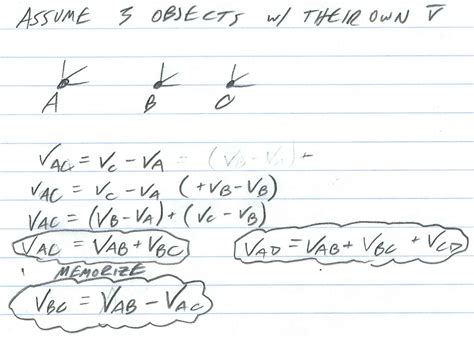 ASSUME 3 OBJECTS w/ THEIR OWN V̄
A B C
V_AC = V_C - V_A = (V_B - V_A) +
V_AC = V_C - V_A (+V_B - V_B)
V_AC = (V_B - V_A) + (V_C - V_B)
V_AC = V_AB + V_BC V_AD = V_AB + V_BC + V_CD
MEMORIZE
V_BC = V_AB - V_AC